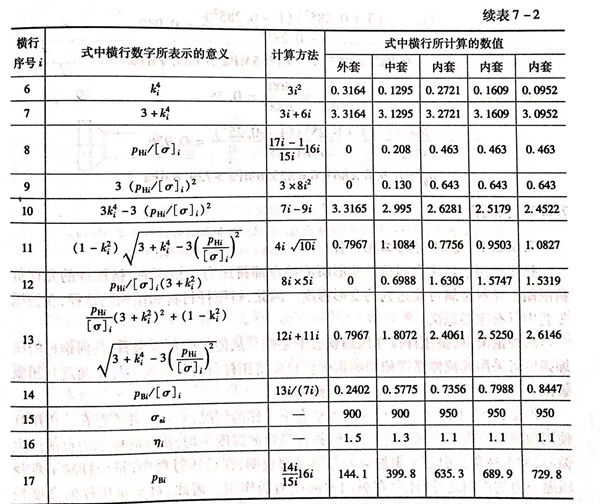 续表7-2
横行序号i 式中横行数字所表示的意义 计算方法 式中横行所计算的数值
外套 中套 内套 内套 内套
6 k_i^4 3i² 0.3164 0.1295 0.2721 0.1609 0.0952
7 3+k_i^4 3i+6i 3.3164 3.1295 3.2721 3.1609 3.0952
8 p_Hi/[σ]_i (17i-1)/(15i) 16i 0 0.208 0.463 0.463 0.463
9 3 (p_Hi/[σ]_i)² 3×8i² 0 0.130 0.643 0.643 0.643
10 3k_i^4-3 (p_Hi/[σ]_i)² 7i-9i 3.3165 2.995 2.6281 2.5179 2.4522
11 (1-k_i²)√(3+k_i^4-3(p_Hi/[σ]_i)²) 4i √(10i) 0.7967 1.1084 0.7756 0.9503 1.0827
12 p_Hi/[σ]_i(3+k_i²) 8i×5i 0 0.6988 1.6305 1.5747 1.5319
13 p_Hi/[σ]_i(3+k_i²)²+(1-k_i²) √(3+k_i^4-3(p_Hi/[σ]_i)²) 12i+11i 0.7967 1.8072 2.4061 2.5250 2.6146
14 p_Bi/[σ]_i 13i/(7i) 0.2402 0.5775 0.7356 0.7988 0.8447
15 σ_si — 900 900 950 950 950
16 η_i — 1.5 1.3 1.1 1.1 1.1
17 p_Bi (14i/15i)16i 144.1 399.8 635.3 689.9 729.8